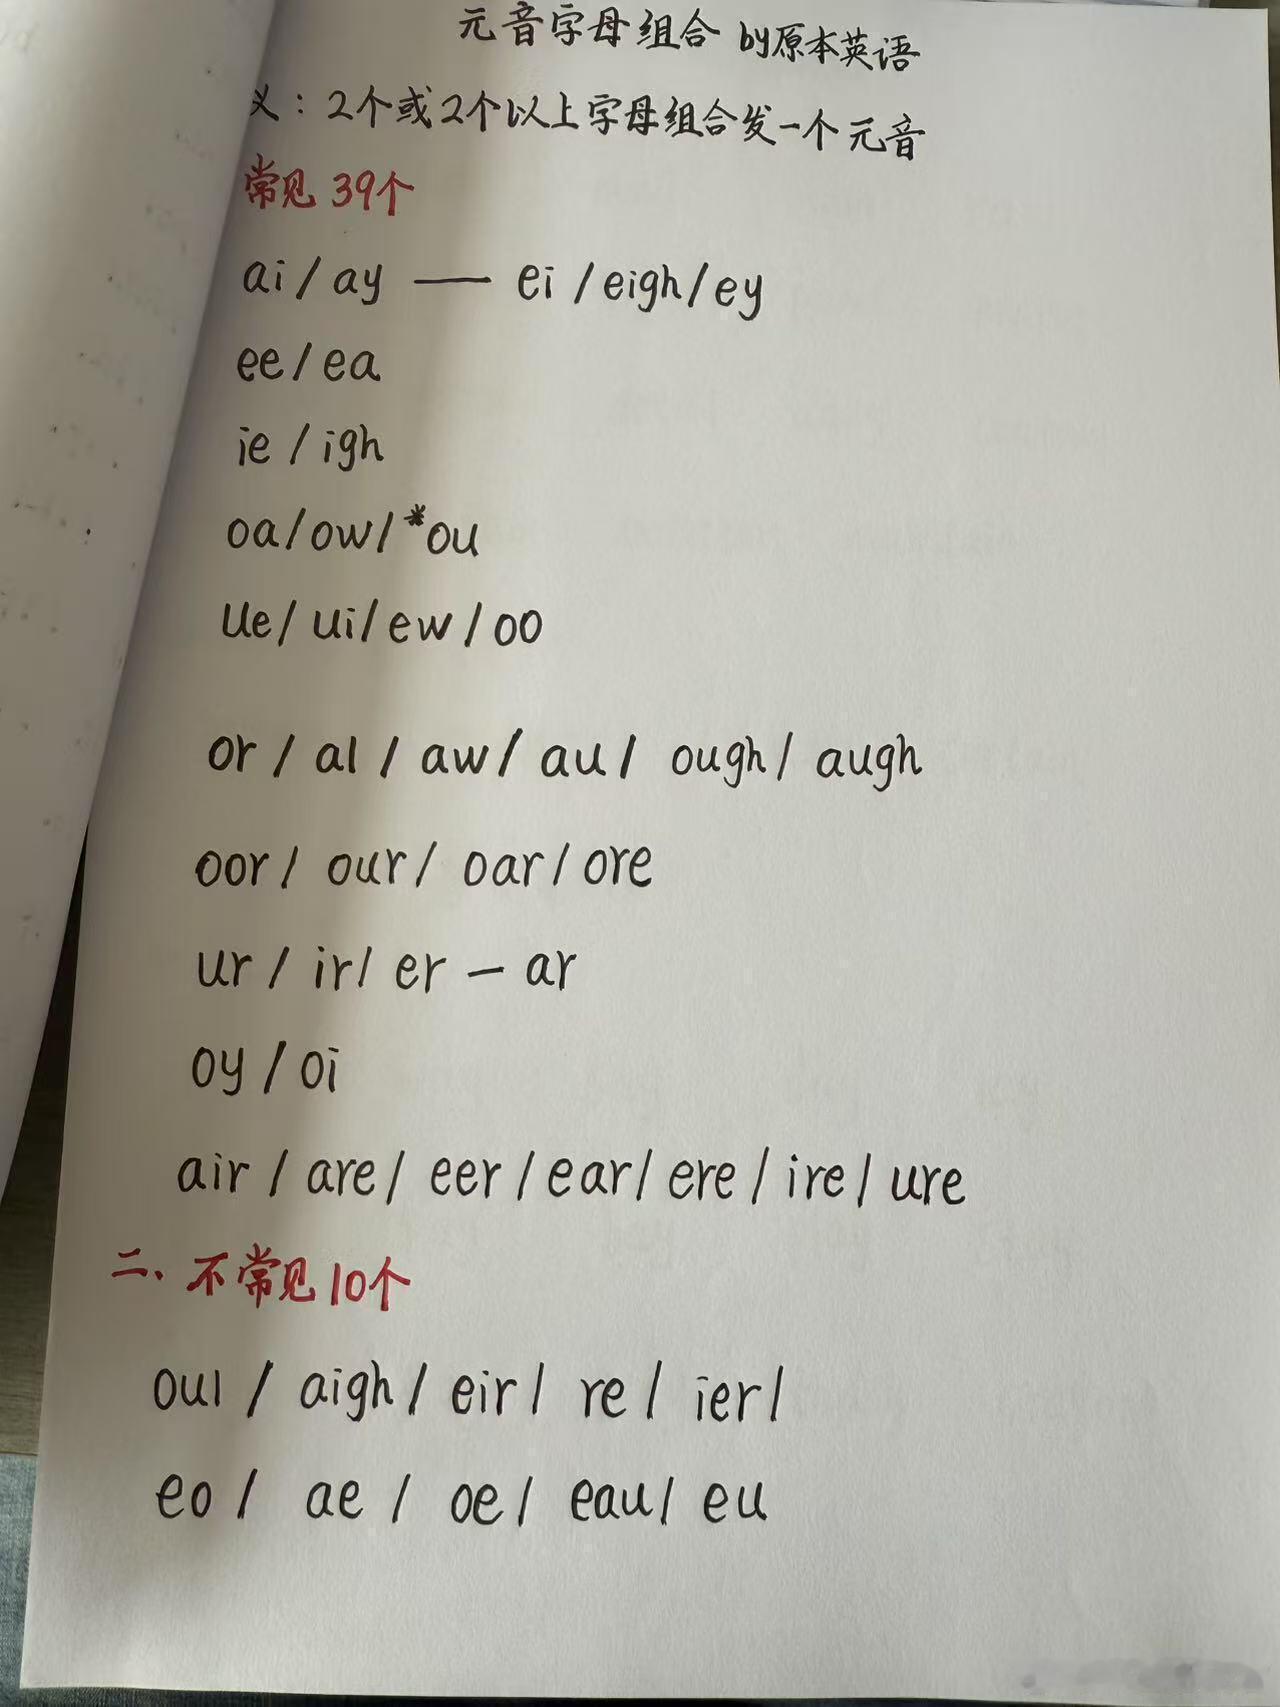 元音字母组合 by原本英语
义：2个或2个以上字母组合发一个元音
常见 39个
ai / ay — ei / eigh / ey
ee / ea
ie / igh
oa / ow / *ou
ue / ui / ew / oo
or / al / aw / au / ough / augh
oor / our / oar / ore
ur / ir / er — ar
oy / oi
air / are / eer / ear / ere / ire / ure
二、不常见10个
oul / aigh / eir / re / ier /
eo / ae / oe / eau / eu